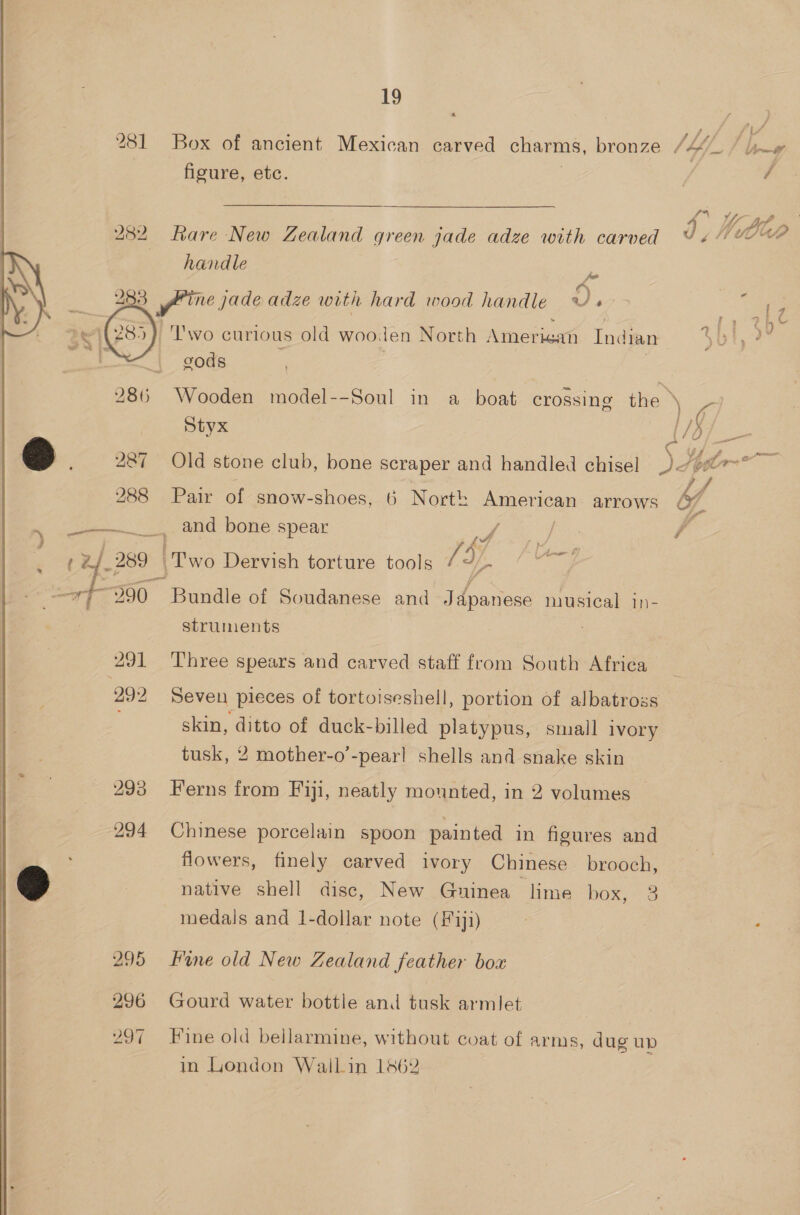 19
281 Box of ancient Mexican carved charms, bronze
figure, etc.
282 Rare New Zealand green jade adze with carved
handle
283 Fine jade adze with hard wood handle
285 Two curious old wooden North American Indian
gods
286 Wooden model--Soul in a boat crossing the
Styx
287 Old stone club, bone scraper and handled chisel
288 Pair of snow-shoes, 6 North American arrows
and bone spear
289 Two Dervish torture tools
290 Bundle of Soudanese and Japanese musical in-
struments
291 Three spears and carved staff from South Africa
292 Seven pieces of tortoiseshell, portion of albatross
skin, ditto of duck-billed platypus, small ivory
tusk, 2 mother-o'-pearl shells and snake skin
293 Ferns from Fiji, neatly mounted, in 2 volumes
294 Chinese porcelain spoon painted in figures and
flowers, finely carved ivory Chinese brooch,
native shell disc, New Guinea lime box, 3
medals and 1-dollar note (Fiji)
295 Fine old New Zealand feather box
296 Gourd water bottle and tusk armlet
297 Fine old bellarmine, without coat of arms, dug up
in London Wall in 1862